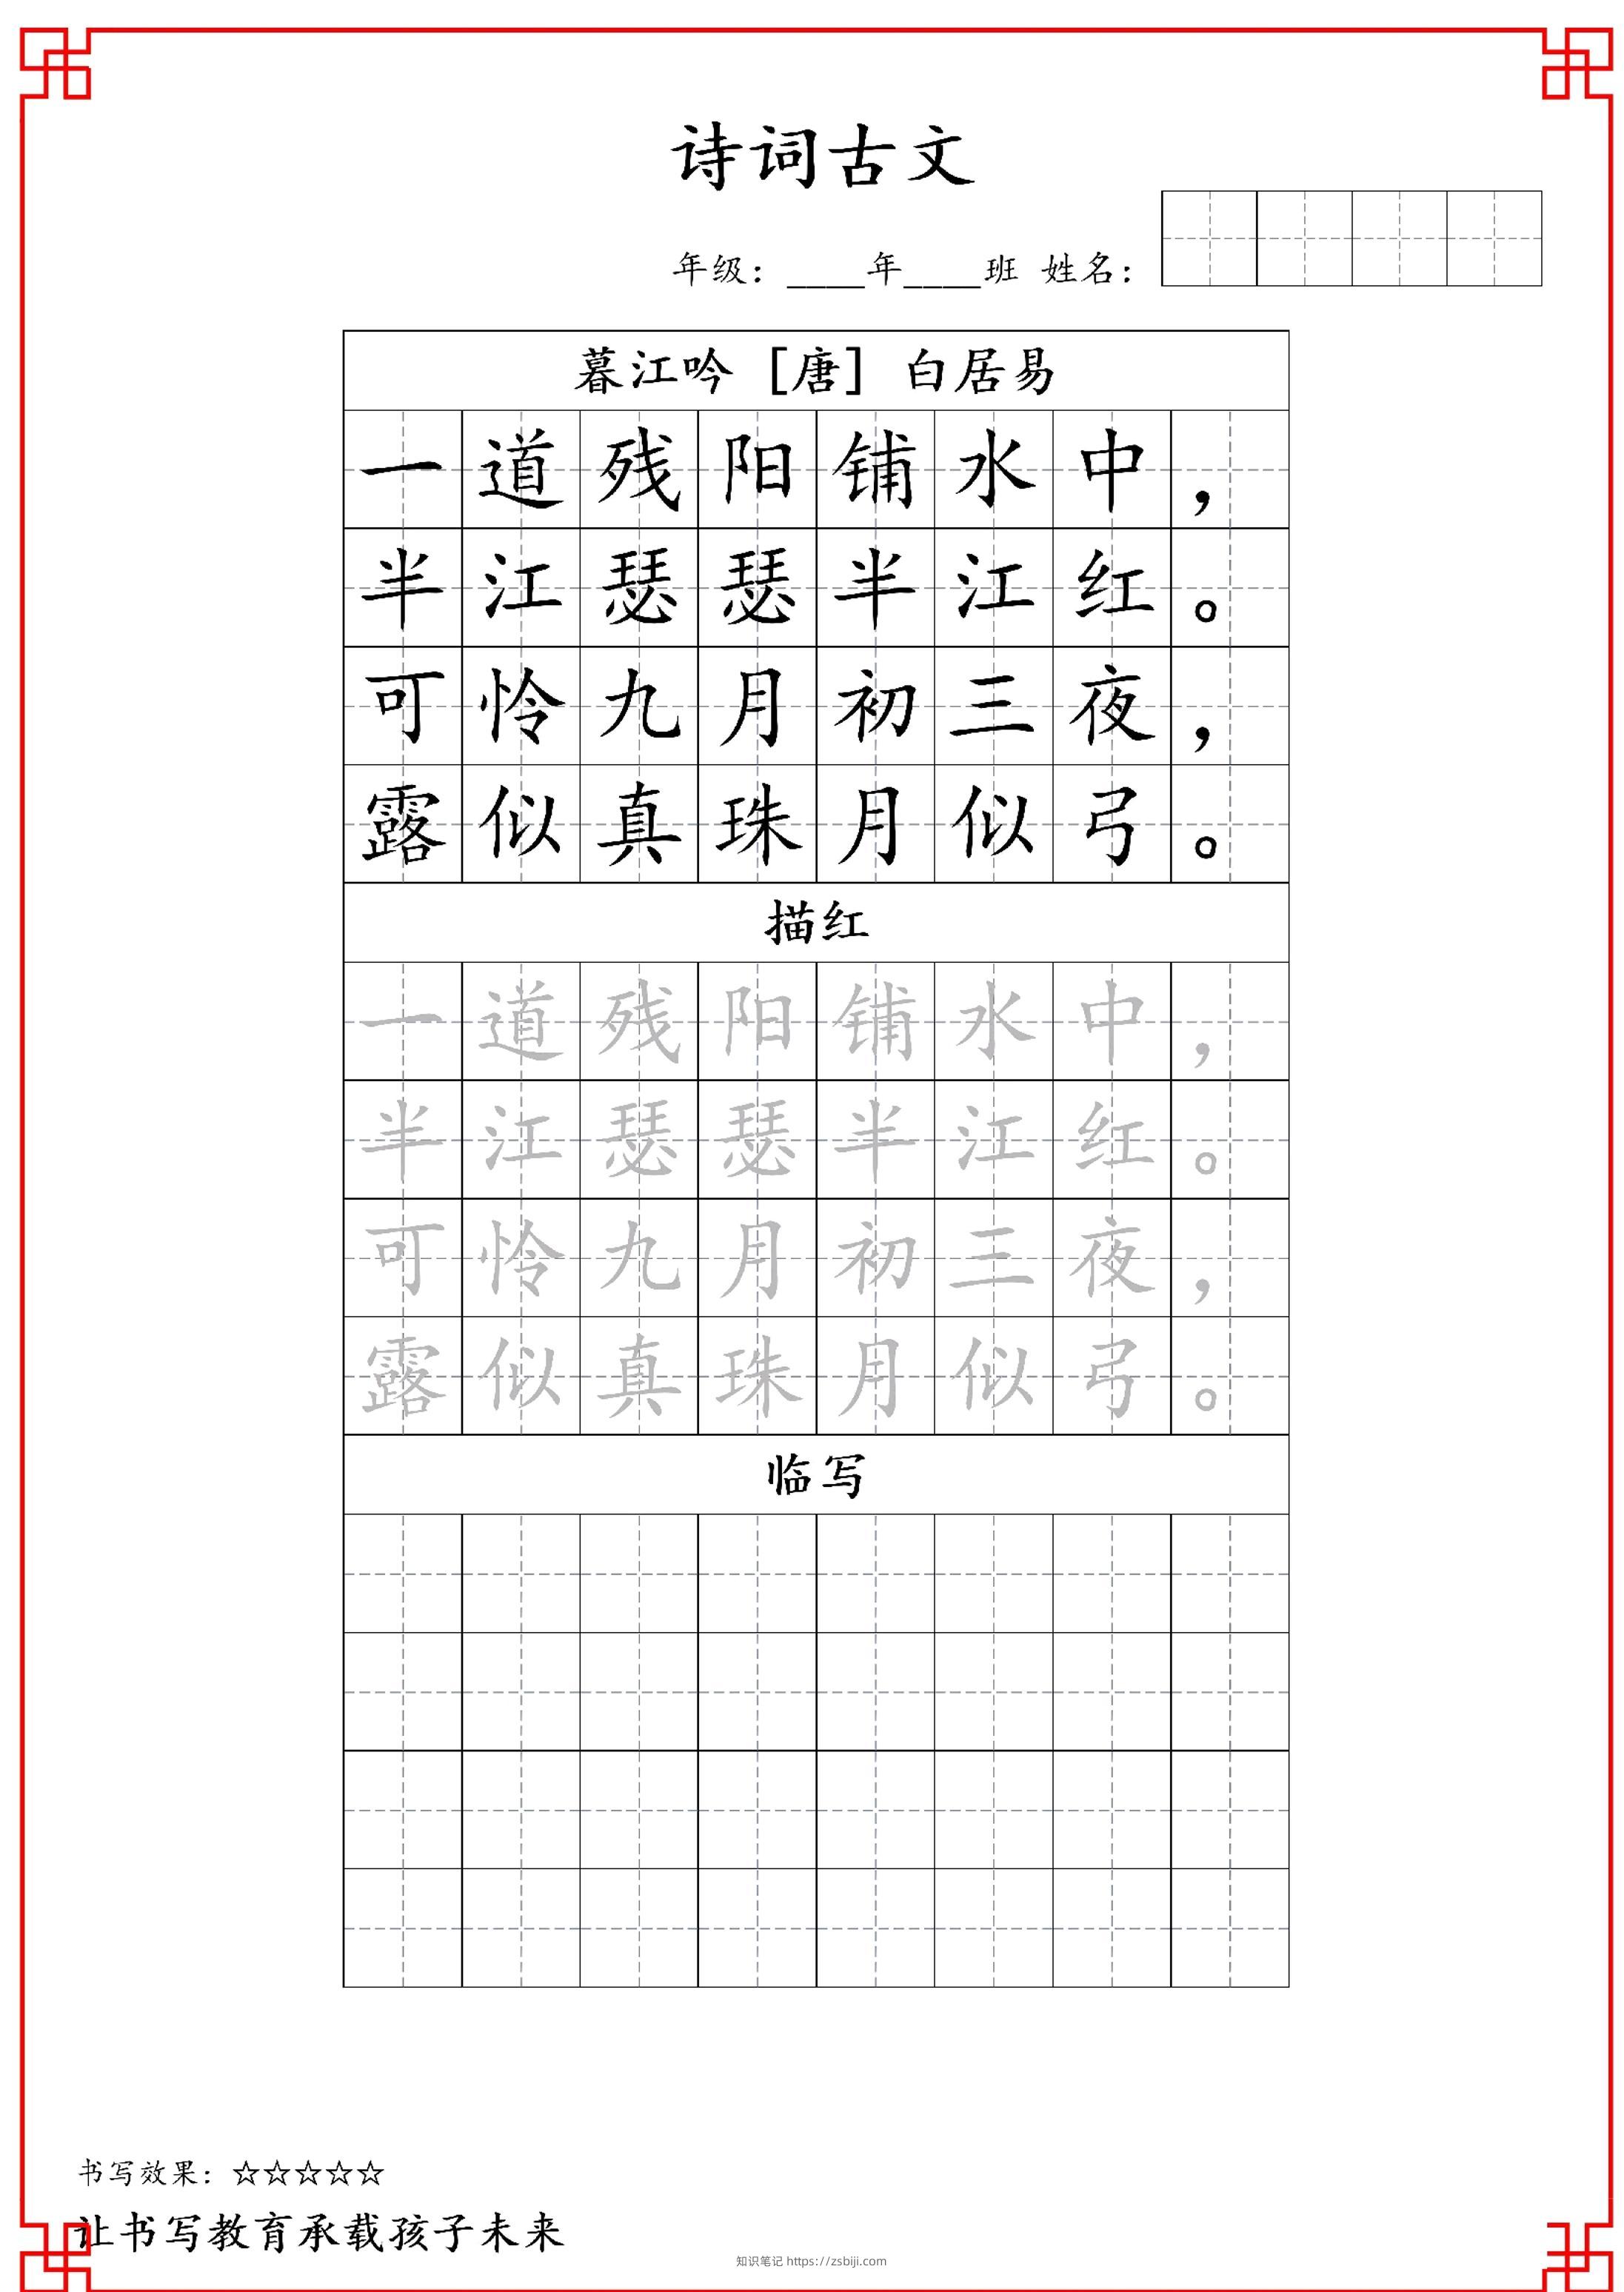 诗词古文
年级：____年____班 姓名：
暮江吟 [唐] 白居易
一道残阳铺水中，
半江瑟瑟半江红。
可怜九月初三夜，
露似真珠月似弓。
描红
一道残阳铺水中，
半江瑟瑟半江红。
可怜九月初三夜，
露似真珠月似弓。
临写
书写效果：☆☆☆☆☆
让书写教育承载孩子未来
知识笔记 https://zsbiji.com